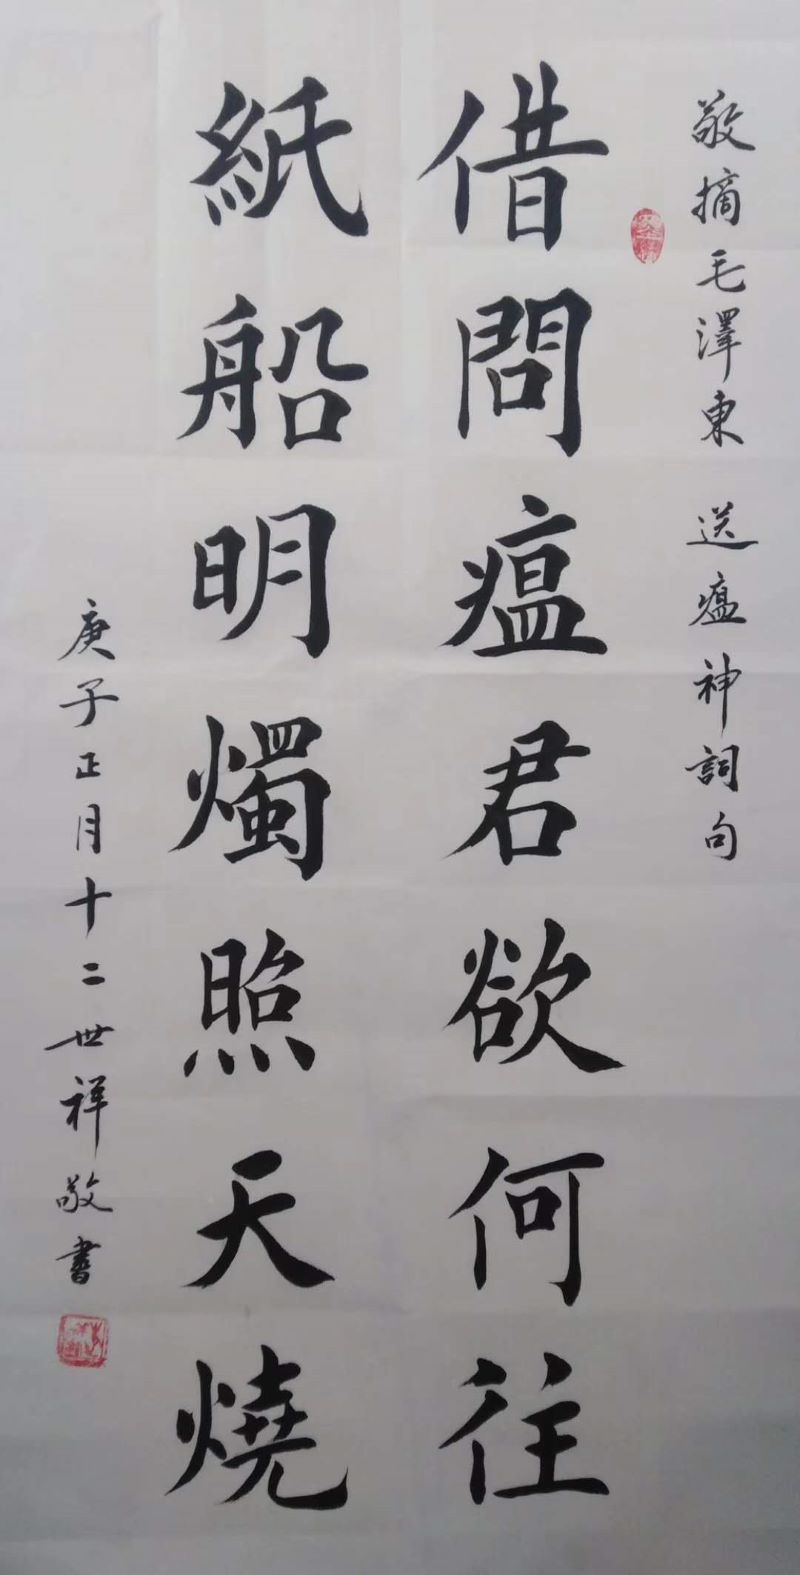 敬摘毛澤東 送瘟神詞句
借問瘟君欲何往
紙船明燭照天燒
庚子正月十二世祥敬書